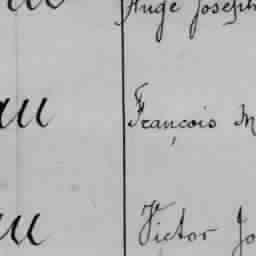 Ange Joseph
au François M
au Victor Jo